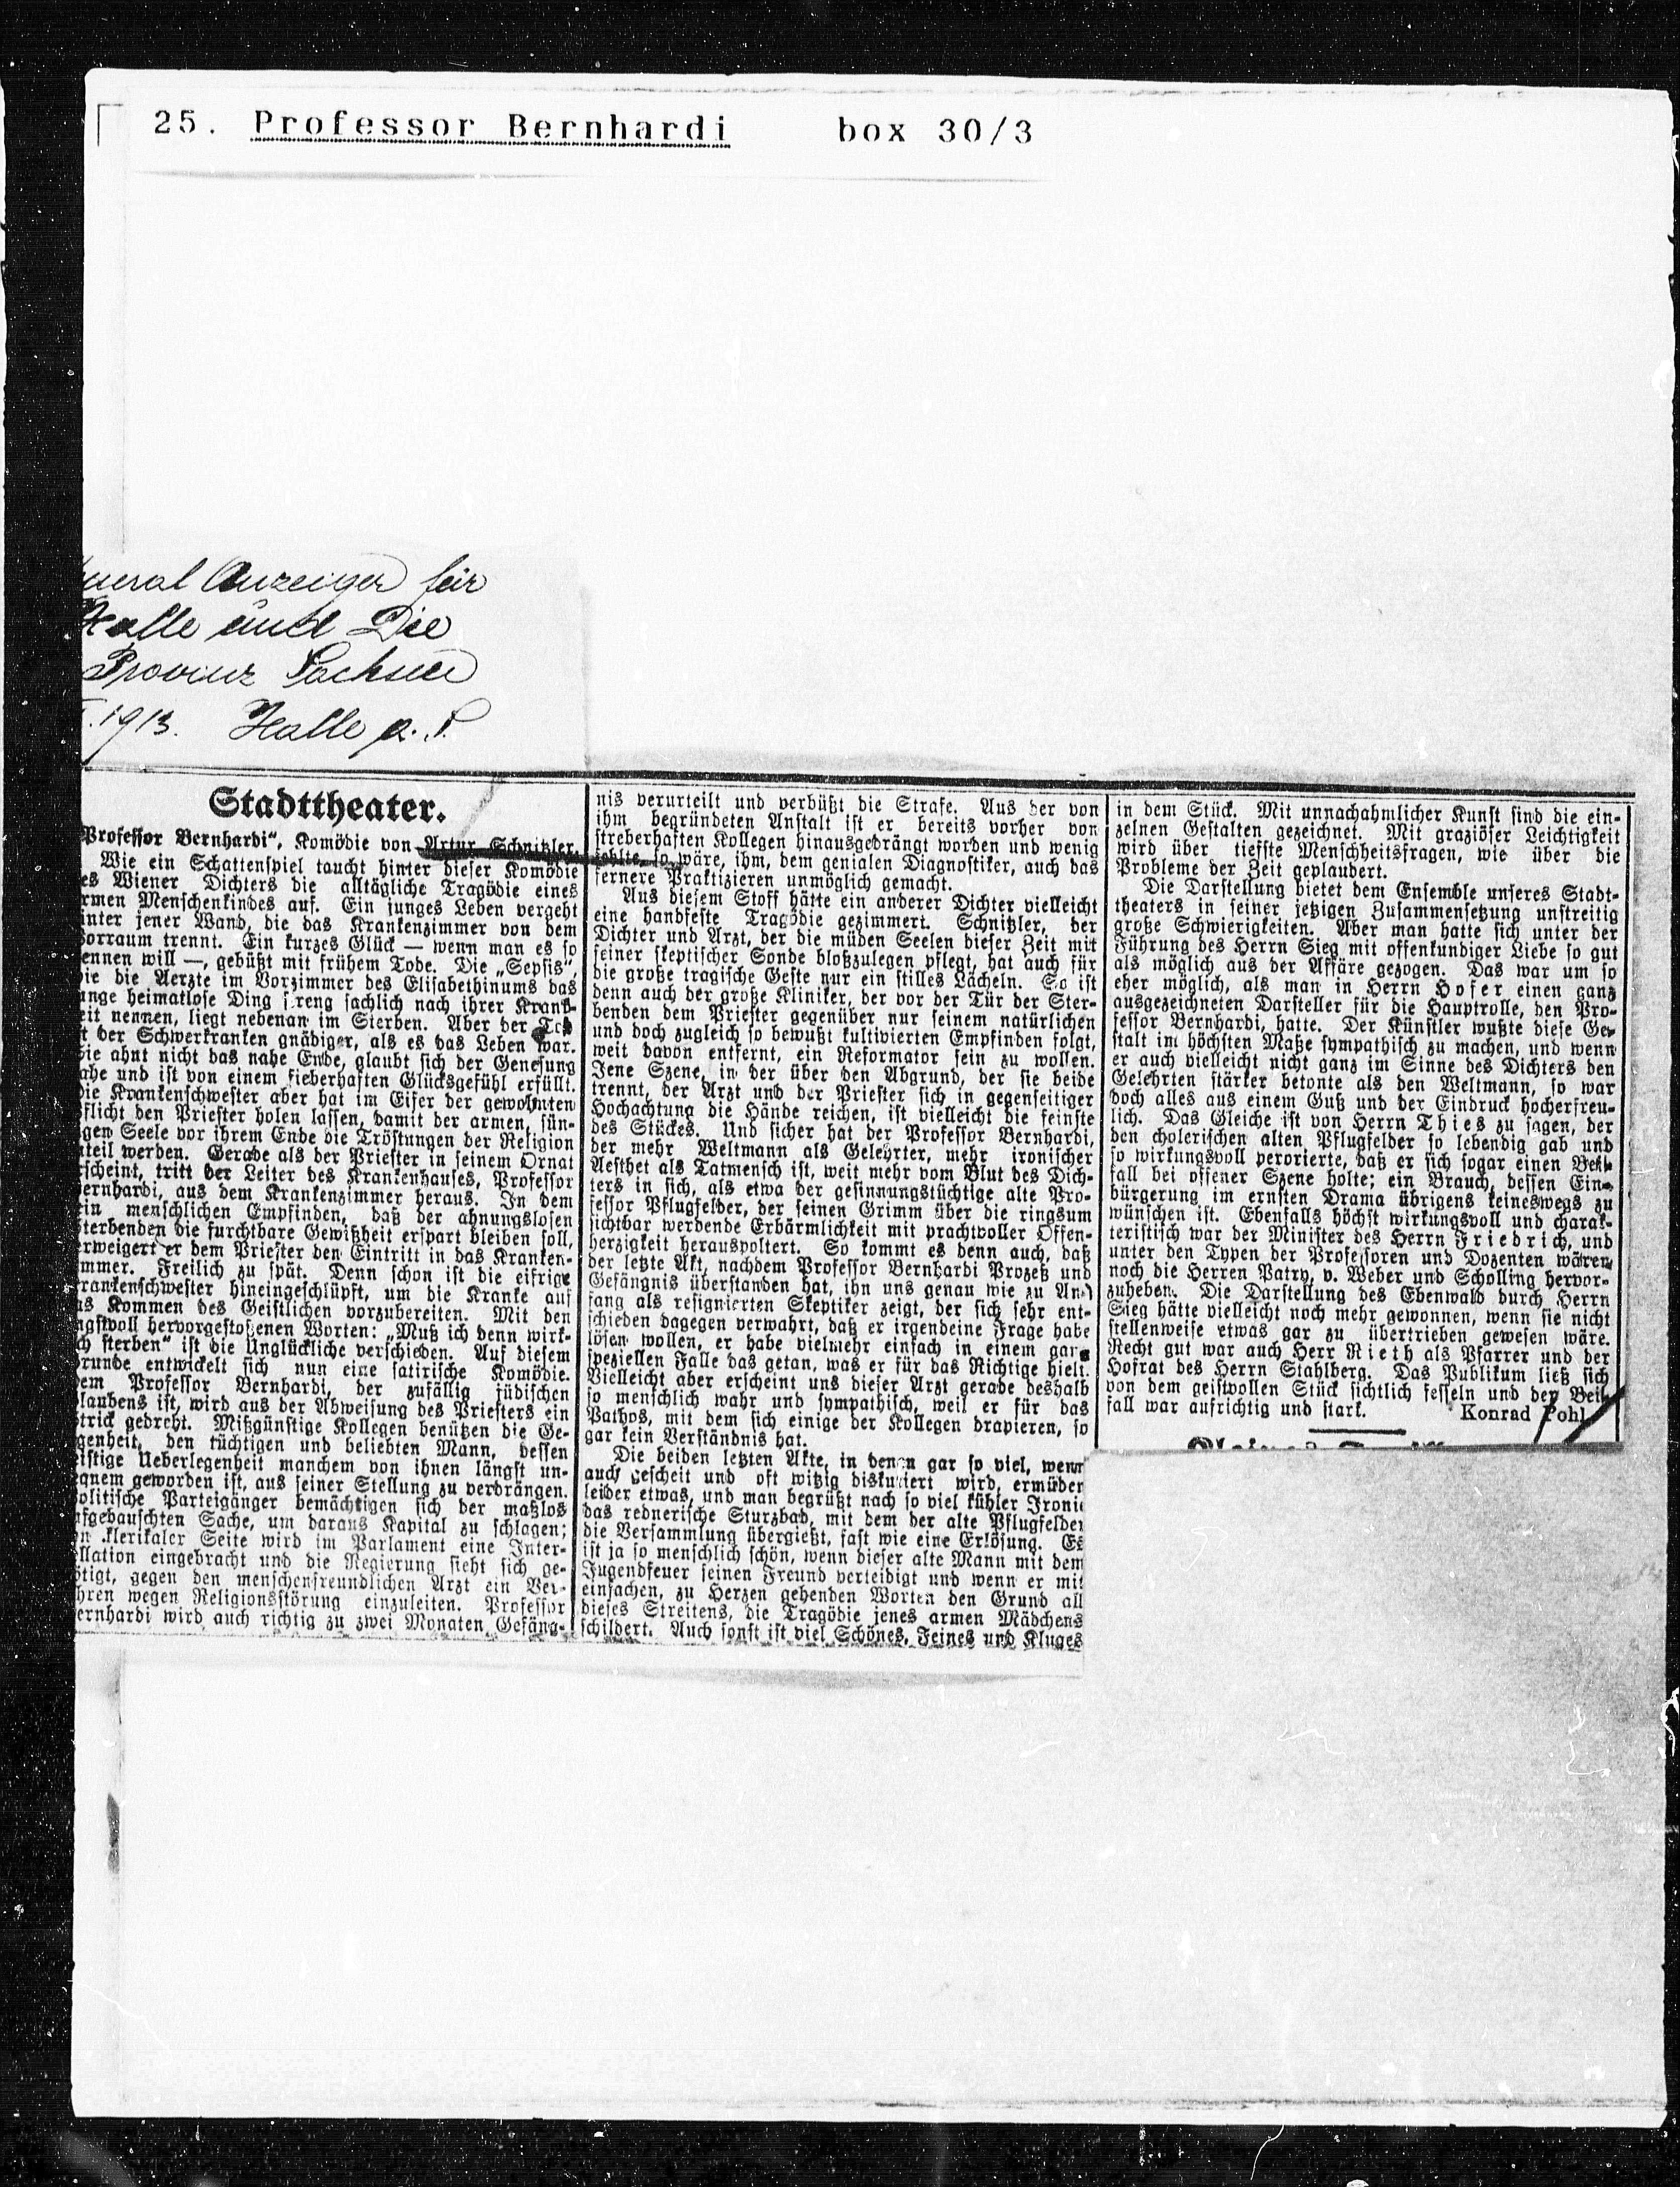 25. Professor Bernhardi box 30/3
neral Anzeiger für
Halle und Die
Provinz Sachsen
1913. Halle a. S.
Stadttheater.
Professor Bernhardi“, Komödie von Artur Schnitzler.
Wie ein Schattenspiel taucht hinter dieser Komödie
es Wiener Dichters die alltägliche Tragödie eines
rmen Menschenkindes auf. Ein junges Leben vergeht
inter jener Wand, die das Krankenzimmer von dem
orraum trennt. Ein kurzes Glück — wenn man es so
ennen will —, gebüßt mit frühem Tode. Die „Sepsis“,
ie die Aerzte im Vorzimmer des Elisabethinums das
unge heimatlose Ding streng sachlich nach ihrer Krank-
eit nennen, liegt nebenan im Sterben. Aber der Tod
t der Schwerkranken gnädiger, als es das Leben war.
ie ahnt nicht das nahe Ende, glaubt sich der Genesung
ahe und ist von einem fieberhaften Glücksgefühl erfüllt.
ie Krankenschwester aber hat im Eifer der gewohnten
flicht den Priester holen lassen, damit der armen, sün-
gen Seele vor ihrem Ende die Tröstungen der Religion
teil werden. Gerade als der Priester in seinem Ornat
scheint, tritt der Leiter des Krankenhauses, Professor
ernhardi, aus dem Krankenzimmer heraus. In dem
ein menschlichen Empfinden, daß der ahnungslosen
terbenden die furchtbare Gewißheit erspart bleiben soll,
erweigert er dem Priester den Eintritt in das Kranken-
mmer. Freilich zu spät. Denn schon ist die eifrige
rankenschwester hineingeschlüpft, um die Kranke auf
as Kommen des Geistlichen vorzubereiten. Mit den
ngstvoll hervorgestoßenen Worten: „Muß ich denn wirk-
ch sterben“ ist die Unglückliche verschieden. Auf diesem
runde entwickelt sich nun eine satirische Komödie.
em Professor Bernhardi, der zufällig jüdischen
laubens ist, wird aus der Abweisung des Priesters ein
trick gedreht. Mißgünstige Kollegen benützen die Ge-
genheit, den tüchtigen und beliebten Mann, dessen
eistige Ueberlegenheit manchem von ihnen längst un-
quem geworden ist, aus seiner Stellung zu verdrängen.
olitische Parteigänger bemächtigen sich der maßlos
ufgebauschten Sache, um daraus Kapital zu schlagen;
n klerikaler Seite wird im Parlament eine Inter-
llation eingebracht und die Regierung sieht sich ge-
ötigt, gegen den menschenfreundlichen Arzt ein Ver-
hren wegen Religionsstörung einzuleiten. Professor
ernhardi wird auch richtig zu zwei Monaten Gefäng-
nis verurteilt und verbüßt die Strafe. Aus der von
ihm begründeten Anstalt ist er bereits vorher von
streberhaften Kollegen hinausgedrängt worden und wenig
fehlte, so wäre, ihm, dem genialen Diagnostiker, auch das
fernere Praktizieren unmöglich gemacht.
Aus diesem Stoff hätte ein anderer Dichter vielleicht
eine handfeste Tragödie gezimmert. Schnitzler, der
Dichter und Arzt, der die müden Seelen dieser Zeit mit
seiner skeptischer Sonde bloßzulegen pflegt, hat auch für
die große tragische Geste nur ein stilles Lächeln. So ist
denn auch der große Kliniker, der vor der Tür der Ster-
benden dem Priester gegenüber nur seinem natürlichen
und doch zugleich so bewußt kultivierten Empfinden folgt,
weit davon entfernt, ein Reformator sein zu wollen.
Jene Szene, in der über den Abgrund, der sie beide
trennt, der Arzt und der Priester sich in gegenseitiger
Hochachtung die Hände reichen, ist vielleicht die feinste
des Stückes. Und sicher hat der Professor Bernhardi,
der mehr Weltmann als Gelehrter, mehr ironischer
Aesthet als Tatmensch ist, weit mehr vom Blut des Dich-
ters in sich, als etwa der gesinnungstüchtige alte Pro-
fessor Pflugfelder, der seinen Grimm über die ringsum
sichtbar werdende Erbärmlichkeit mit prachtvoller Offen-
herzigkeit herauspoltert. So kommt es denn auch, daß
der letzte Akt, nachdem Professor Bernhardi Prozeß und
Gefängnis überstanden hat, ihn uns genau wie zu An-
fang als resignierten Skeptiker zeigt, der sich sehr ent-
schieden dagegen verwahrt, daß er irgendeine Frage habe
lösen wollen, er habe vielmehr einfach in einem ganz
speziellen Falle das getan, was er für das Richtige hielt.
Vielleicht aber erscheint uns dieser Arzt gerade deshalb
so menschlich wahr und sympathisch, weil er für das
Pathos, mit dem sich einige der Kollegen drapieren, so
gar kein Verständnis hat.
Die beiden letzten Akte, in denen gar so viel, wenn
auch gescheit und oft witzig diskutiert wird, ermüden
leider etwas, und man begrüßt nach so viel kühler Ironie
das rednerische Sturzbad, mit dem der alte Pflugfelder
die Versammlung übergießt, fast wie eine Erlösung. Es
ist ja so menschlich schön, wenn dieser alte Mann mit dem
Jugendfeuer seinen Freund verteidigt und wenn er mit
einfachen, zu Herzen gehenden Worten den Grund all
dieses Streitens, die Tragödie jenes armen Mädchens
schildert. Auch sonst ist viel Schönes, Feines und Kluges
in dem Stück. Mit unnachahmlicher Kunst sind die ein-
zelnen Gestalten gezeichnet. Mit graziöser Leichtigkeit
wird über tiefste Menschheitsfragen, wie über die
Probleme der Zeit geplaudert.
Die Darstellung bietet dem Ensemble unseres Stadt-
theaters in seiner jetzigen Zusammensetzung unstreitig
große Schwierigkeiten. Aber man hatte sich unter der
Führung des Herrn Sieg mit offenkundiger Liebe so gut
als möglich aus der Affäre gezogen. Das war um so
eher möglich, als man in Herrn Hofer einen ganz
ausgezeichneten Darsteller für die Hauptrolle, den Pro-
fessor Bernhardi, hatte. Der Künstler wußte diese Ge-
stalt im höchsten Maße sympathisch zu machen, und wenn
er auch vielleicht nicht ganz im Sinne des Dichters den
Gelehrten stärker betonte als den Weltmann, so war
doch alles aus einem Guß und der Eindruck hocherfreu-
lich. Das Gleiche ist von Herrn Thies zu sagen, der
den cholerischen alten Pflugfelder so lebendig gab und
so wirkungsvoll perorierte, daß er sich sogar einen Bei-
fall bei offener Szene holte; ein Brauch, dessen Ein-
bürgerung im ernsten Drama übrigens keineswegs zu
wünschen ist. Ebenfalls höchst wirkungsvoll und charak-
teristisch war der Minister des Herrn Friedrich, und
unter den Typen der Professoren und Dozenten wären
noch die Herren Patry, v. Weber und Scholling hervor-
zuheben. Die Darstellung des Ebenwald durch Herrn
Sieg hätte vielleicht noch mehr gewonnen, wenn sie nicht
stellenweise etwas gar zu übertrieben gewesen wäre.
Recht gut war auch Herr Rieth als Pfarrer und der
Hofrat des Herrn Stahlberg. Das Publikum ließ sich
von dem geistvollen Stück sichtlich fesseln und der Bei-
fall war aufrichtig und stark. Konrad Pohl